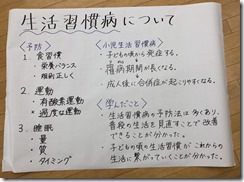 生活習慣病について
〈予防〉
1. 食習慣
・栄養バランス
・規則正しく
2. 運動
・有酸素運動
・適度な運動
3. 睡眠
・量
・質
・タイミング
〈小児生活習慣病〉
・子どもの頃から発症する。
・罹病期間が長くなる。
・成人後に合併症が起こりやすくなる。
〈学んだこと〉
・生活習慣病の予防法は多くあり、
普段の生活を見直すことで改善
できることが分かった。
・子どもの頃の生活習慣が これからの
生活に繋がっていくことが分かった。